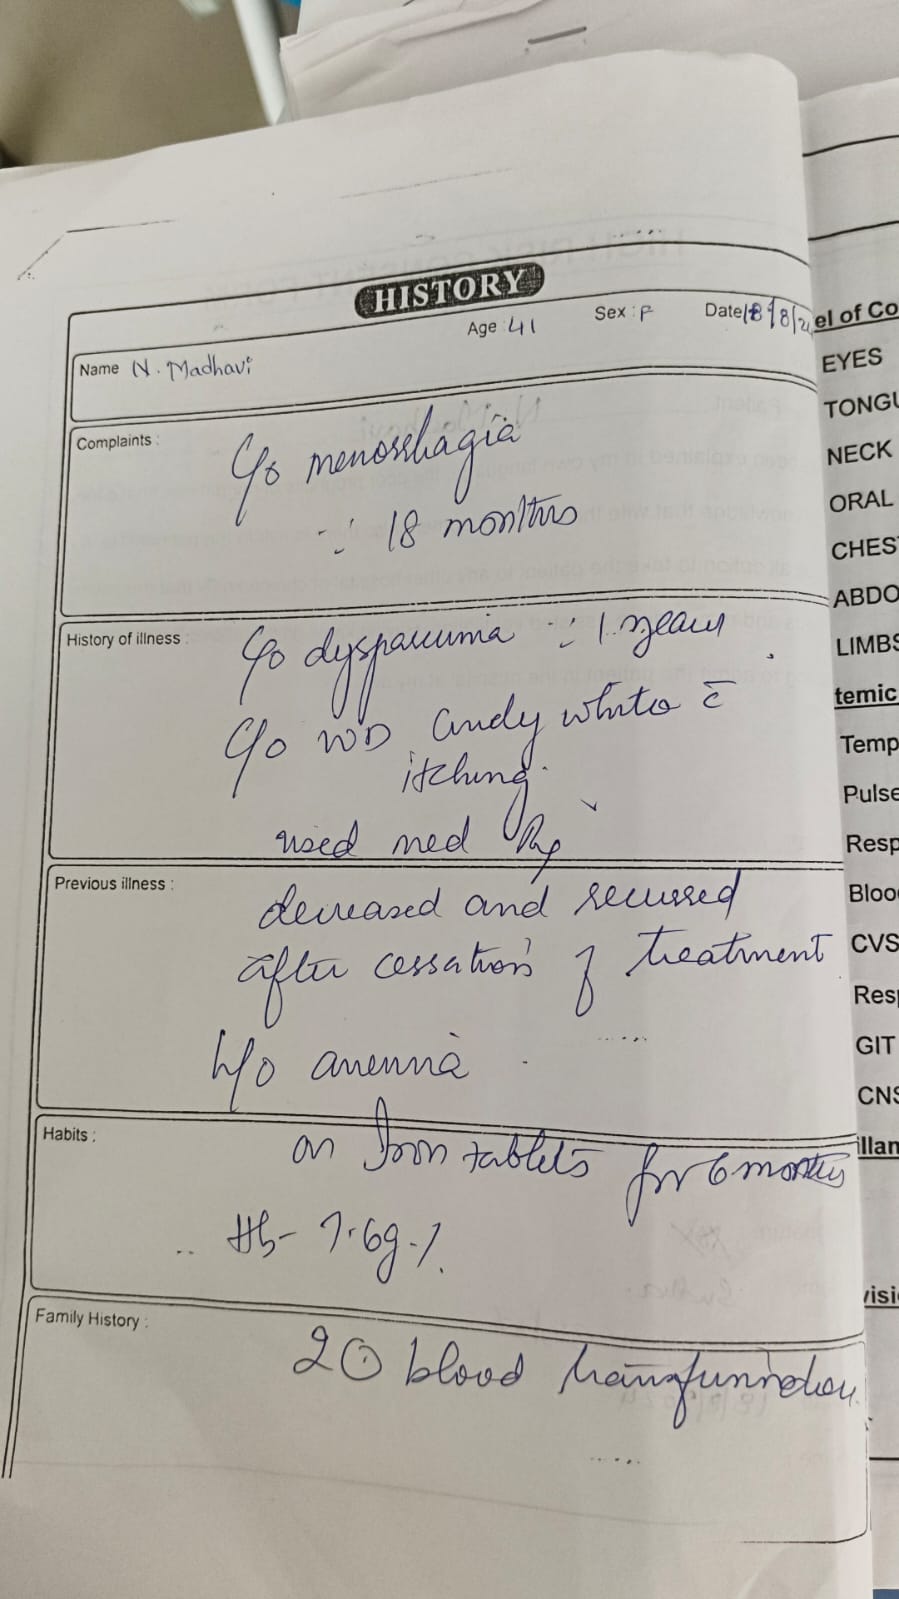 HISTORY
Name N. Madhavi Age : 41 Sex : F Date 18/8/2
Complaints :
C/o menorrhagia
∵ 18 months
History of illness :
C/o dyspareunia ∵ 1 year
C/o WD curdy white c̄
itching.
used med
Previous illness :
decreased and recurred
after cessation of treatment
h/o anemia
Habits :
on Iron tablets for 6 months
Hb- 7.6g%.
Family History :
blood
el of Co
EYES
TONGU
NECK
ORAL
CHEST
ABDO
LIMBS
temic
Temp
Pulse
Resp
Bloo
CVS
Resp
GIT
CNS
illan
visi